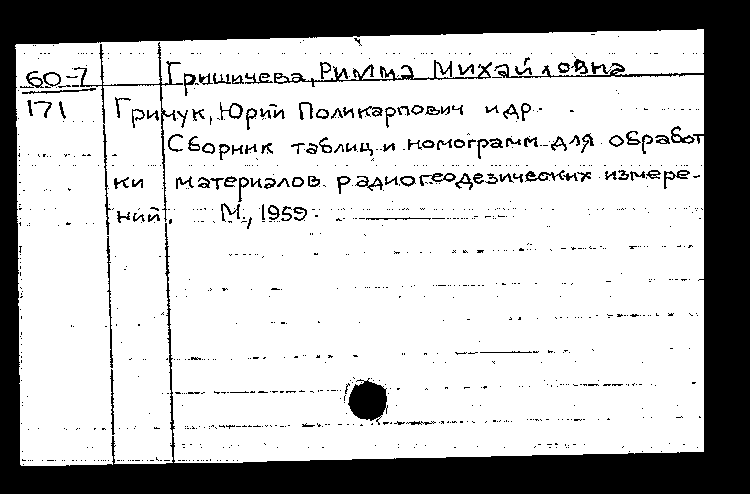 60-7 Гришичева, Римма Михайловна
171 Гричук, Юрий Поликарпович и др.
Сборник таблиц и номограмм для обработ
ки материалов радиогеодезических измере-
ний. М., 1959.